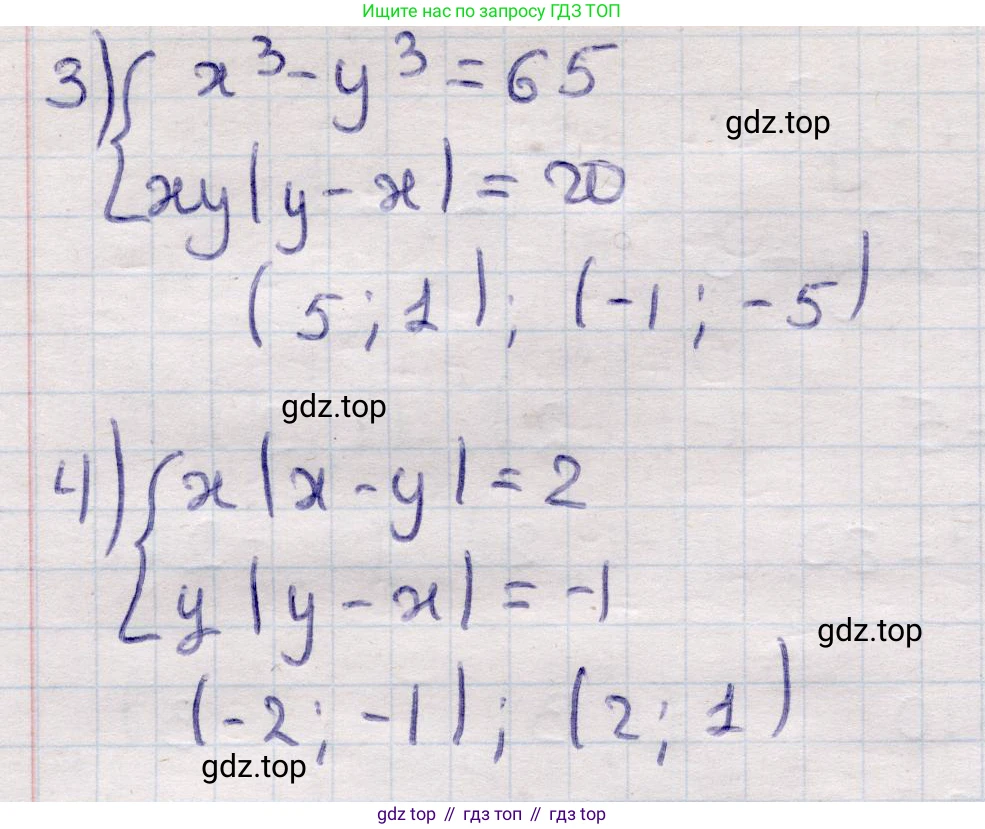 Ищите нас по запросу ГДЗ ТОП
3) { x³ - y³ = 65
xy(y - x) = 20
gdz.top
(5; 1); (-1; -5)
gdz.top
4) { x(x - y) = 2
y(y - x) = -1
gdz.top
(-2; -1); (2; 1)
gdz.top
gdz top // гдз топ // gdz top